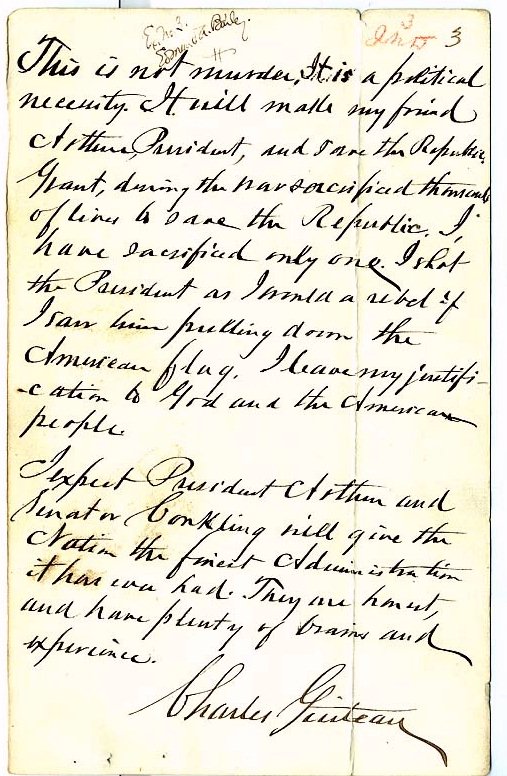 Ex. 2.
Edmund A. Bailey.
3
This is not murder, It is a political
necessity. It will make my friend
Arthur President, and save the Republic.
Grant, during the war sacrificed thousands
of lives to save the Republic. I,
have sacrificed only one. I shot
the President as I would a rebel if
I saw him pulling down the
American flag. I leave my justifi-
-cation to God and the American
people.
I expect President Arthur and
Senator Conkling will give the
Nation the finest Administration
it has ever had. They are honest,
and have plenty of brains and
experience.
Charles Guiteau